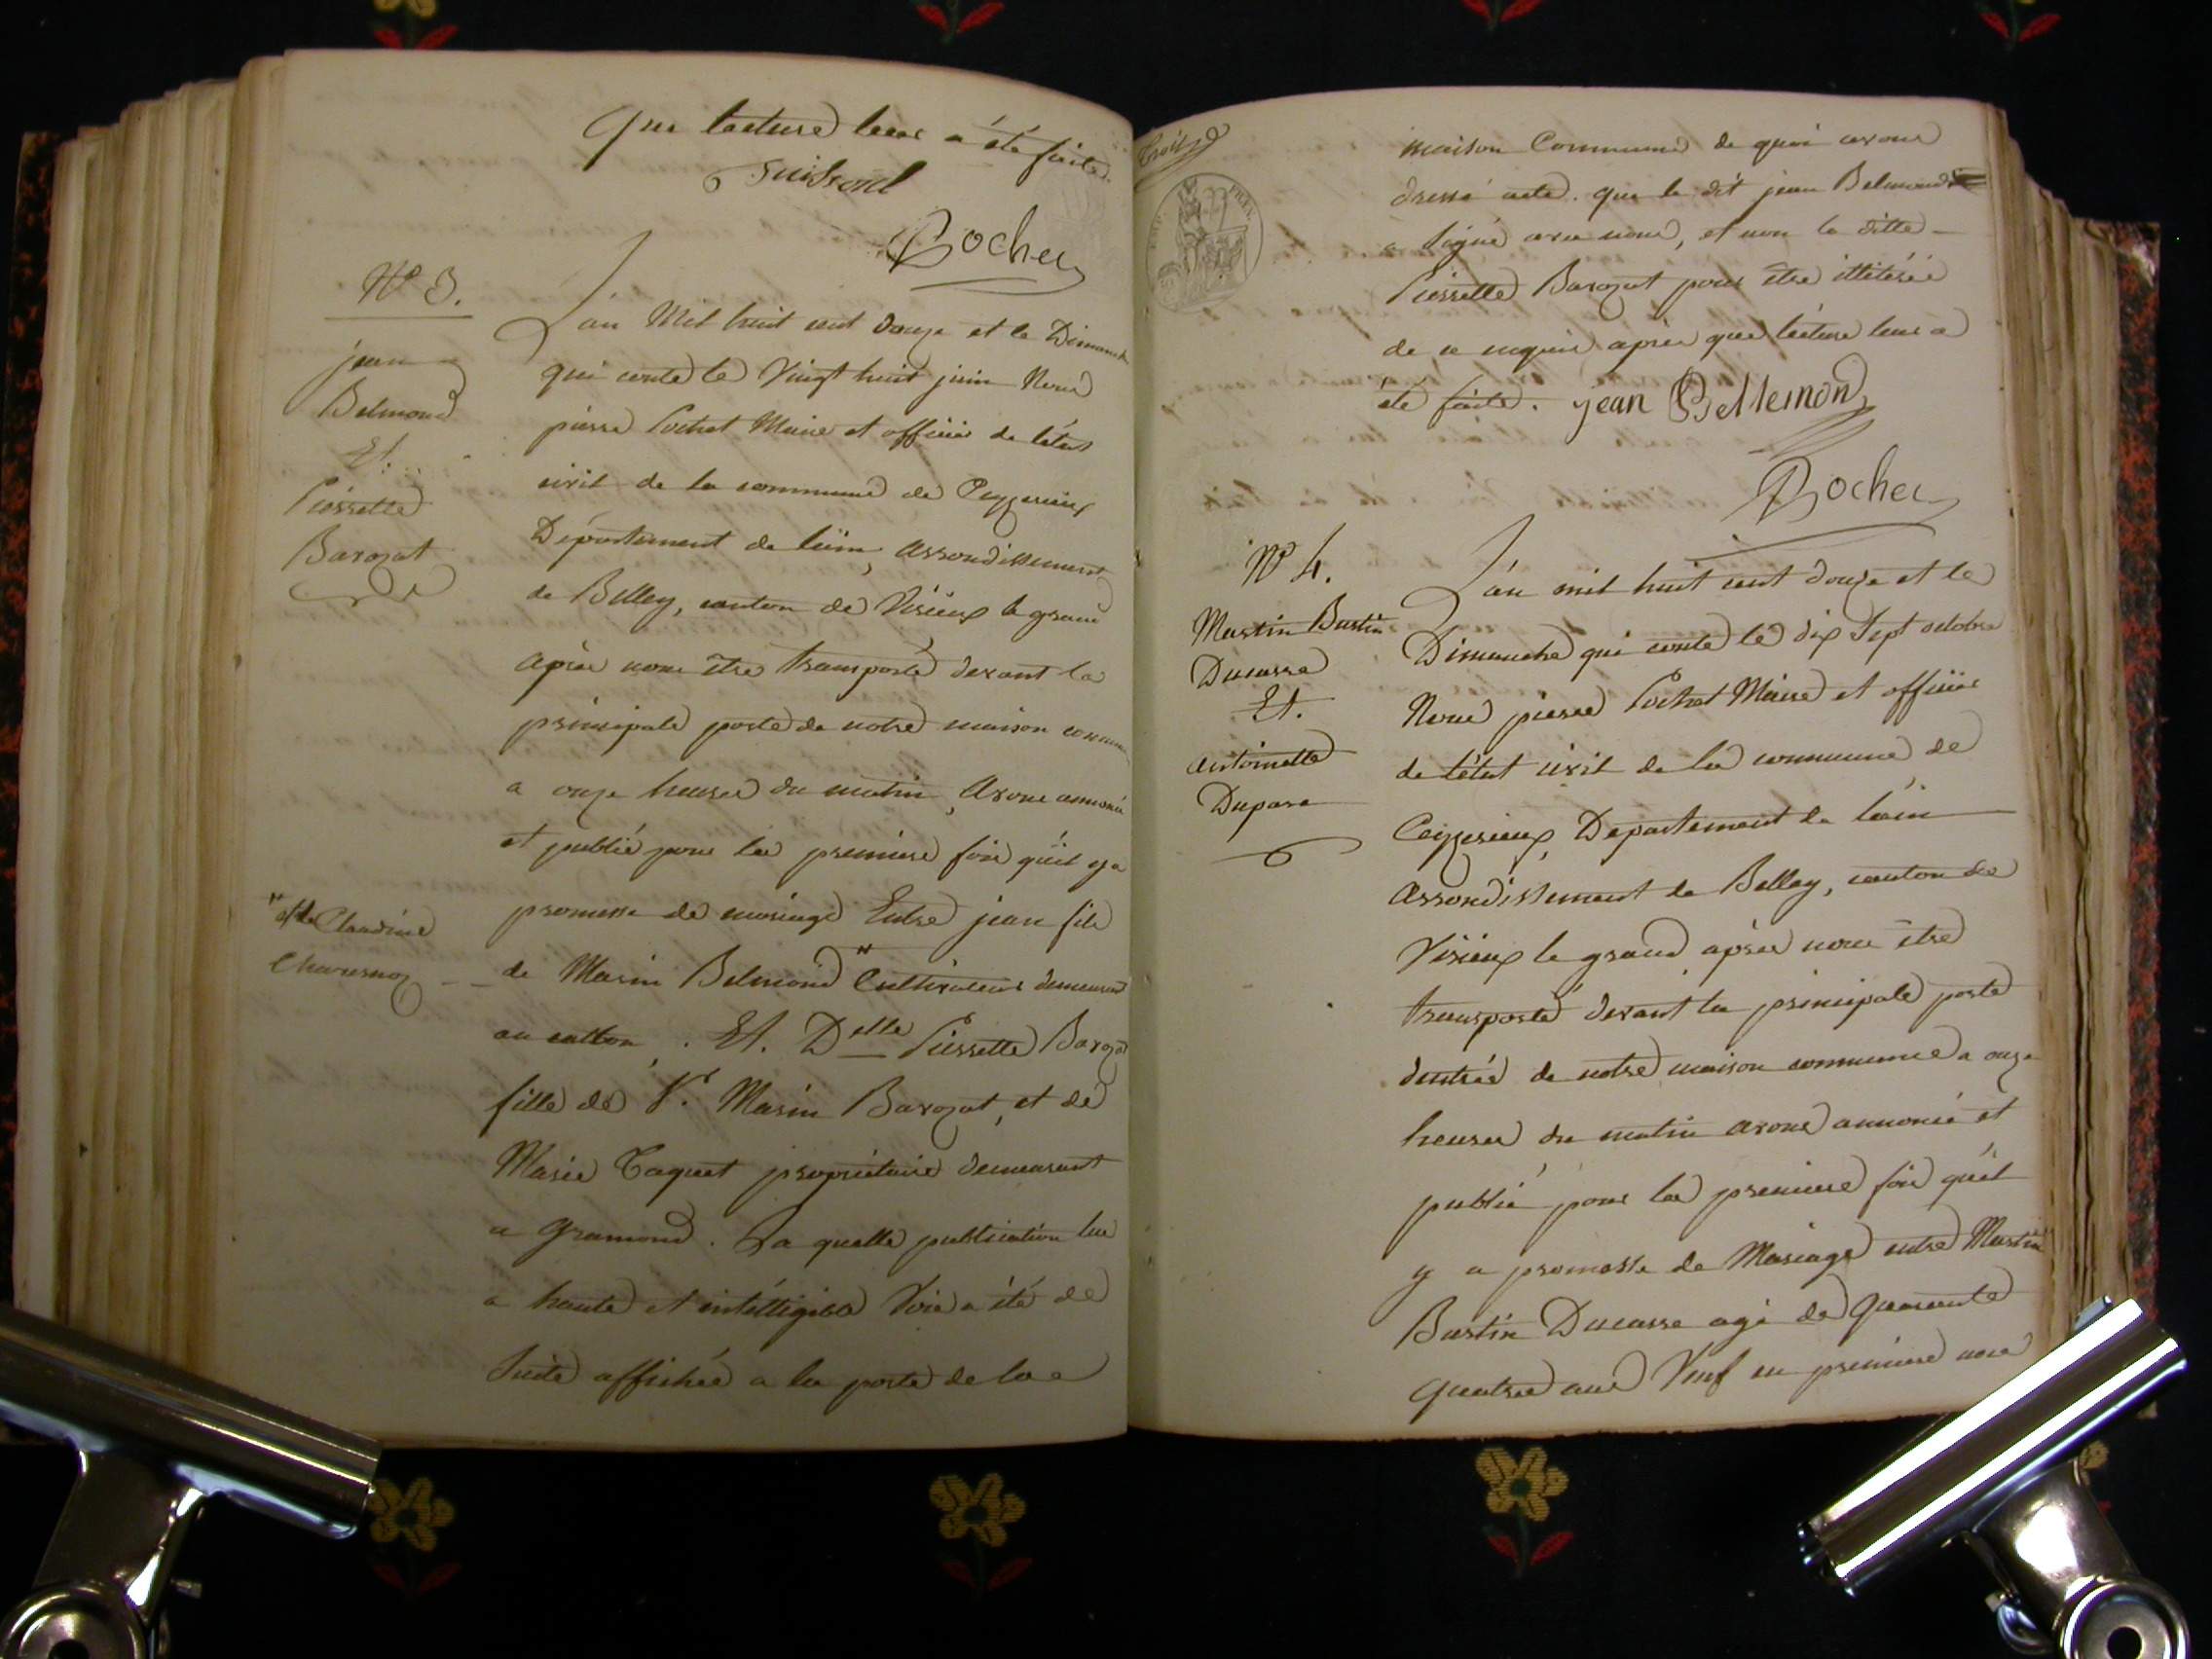 que lecture leur a été faite.
Rochet
N° 3.
jean
Belmond
Et.
Pierrette
Barozat
L'an Mil huit cent douze et le Dimanche
qui conte le Vingt huit juin Nous
pierre Rochet Maire et officier de l'état
civil de la commune de Ceyzerieux
Département de l'ain, arrondissement
de Belley, canton de Virieux le grand
après nous être transporté devant la
principale porte de notre maison commune
a onze heures du matin, avons annoncé
et publié pour la premiere fois qu'il y a
promesse de mariage Entre jean fils
de Marin Belmond " Cultivateur demeurant
" et de Claudine
au . Et. Delle Pierrette Barozat
fille de Sr. Marin Barozat, et de
Marie propriétaire demeurant
a gramond. La quelle publication lue
a haute et intelligible Voix a été de
Suite affichée a la porte de la
maison Commune de quoi avons
dressé acte. que le dit jean Belmond
a Signé avec nous, et non la ditte
Pierrette Barozat pour être illiterée
de ce enquise après que lecture leur a
été faite. jean Bellemond
Rochet
N° 4.
Martin Bustin
Ducasse
Et.
antoinette
L'an mil huit cent douze et le
Dimanche qui conte le dix Sept octobre
Nous pierre Rochet Maire et officier
de l'état civil de la commune de
Ceyzerieux Departement de l'ain
arrondissement de Belley, canton de
Virieux le grand après nous être
transporté devant la principale porte
d'entrée de notre maison commune a onze
heures du matin avons annoncé et
publié pour la premiere fois qu'il
y a promesse de Mariage entre Martin
Bustin Ducasse agé de quarante
quatre ans Veuf en premiere noce